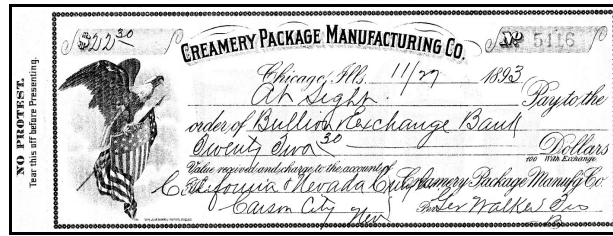 NO PROTEST.
Tear this off before Presenting.
$22 30
CREAMERY PACKAGE MANUFACTURING CO.
No 5116
Chicago, Ill. 11/27 1893
At Sight Pay to the
order of Bullion & Exchange Bank
Twenty Two 30 Dollars
100 With Exchange
Value received and charge to the account of
California & Nevada Creamery Package Manuf'g Co.
Carson City Nev Walker